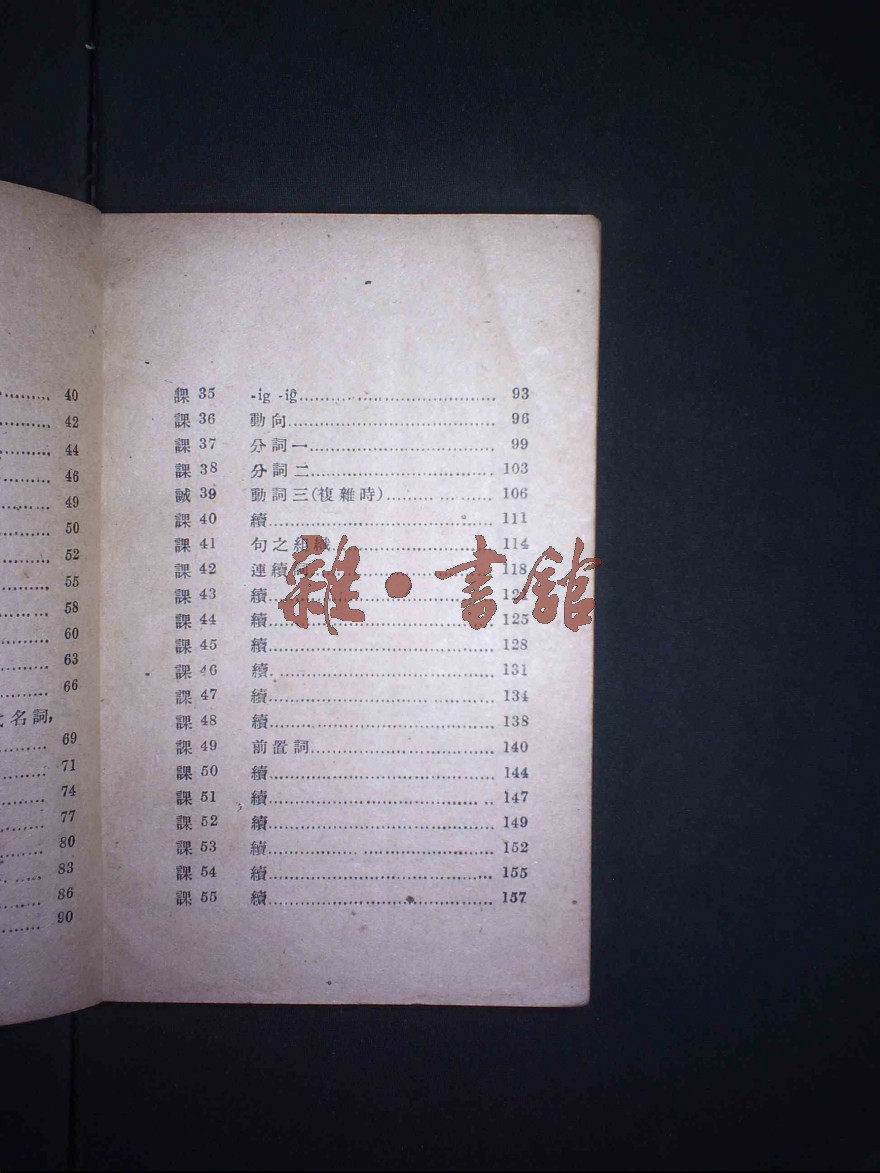 40
42
44
46
49
50
52
55
58
60
63
66
名詞,
69
71
74
77
80
83
86
90
課 35 -ig -iĝ 93
課 36 動向 96
課 37 分詞一 99
課 38 分詞二 103
誠 39 動詞三(複雜時) 106
課 40 續 111
課 41 句之組織 114
課 42 連續詞 118
課 43 續
課 44 續 125
課 45 續 128
課 46 續 131
課 47 續 134
課 48 續 138
課 49 前置詞 140
課 50 續 144
課 51 續 147
課 52 續 149
課 53 續 152
課 54 續 155
課 55 續 157
雜·書館